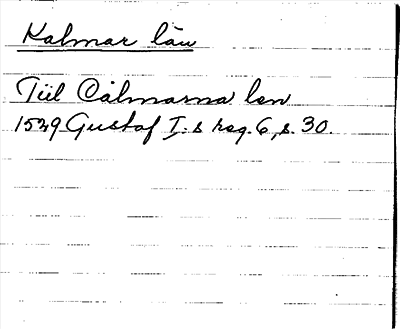 Kalmar län
Tiil Calmarna len
1529 Gustaf I:s reg. 6, s. 30.